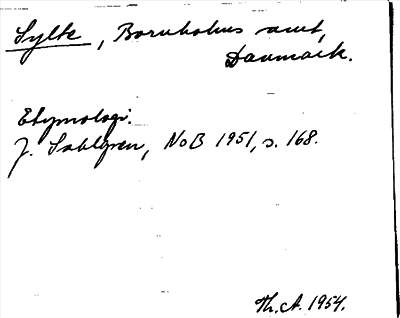 Sylte, Bornholms amt,
Danmark.
Etymologi.
J. Sahlgren, NoB 1951, s. 168.
Th. A. 1954.